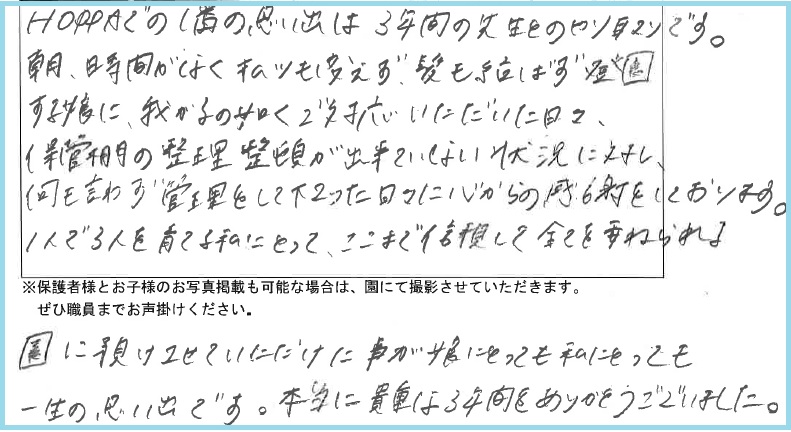 HOPPAでの1番の思い出は3年間の先生とのやり取りです。
朝、時間がなく私ツも変えず、髪も結ばず登園
する娘に、我が子の如くご対応いただいた日々、
保管棚の整理整頓が出来ていない状況に対し、
何も言わず管理をして下さった日々に心からの感謝をしております。
1人で3人を育てる私にとって、ここまで信頼して全てを委ねられる
※保護者様とお子様のお写真掲載も可能な場合は、園にて撮影させていただきます。
ぜひ職員までお声掛けください。
園に預けさせていただけた事が娘にとっても私にとっても
一生の思い出です。本当に貴重な3年間をありがとうございました。